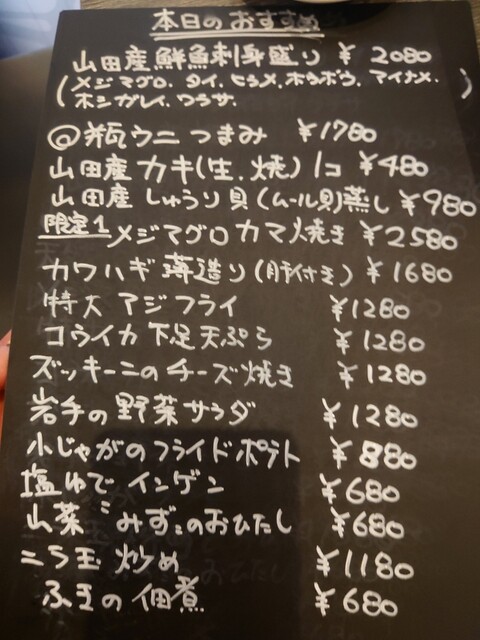 本日のおすすめ
山田産鮮魚刺身盛り ¥2080
(メジマグロ、タイ、ヒラメ、ホウボウ、マイナメ、
ホシガレイ、ワラサ、)
@瓶ウニつまみ ¥1780
山田産カキ(生、焼)1コ ¥480
山田産しゅうり貝(ムール貝)蒸し ¥980
限定1メジマグロカマ焼き ¥2580
カワハギ薄造り(肝付き) ¥1680
特大アジフライ ¥1280
コウイカ下足天ぷら ¥1280
ズッキーニのチーズ焼き ¥1280
岩手の野菜サラダ ¥1280
小じゃがのフライドポテト ¥880
塩ゆでインゲン ¥680
山菜〝みず〟のおひたし ¥680
ニラ玉炒め ¥1180
ふきの佃煮 ¥680